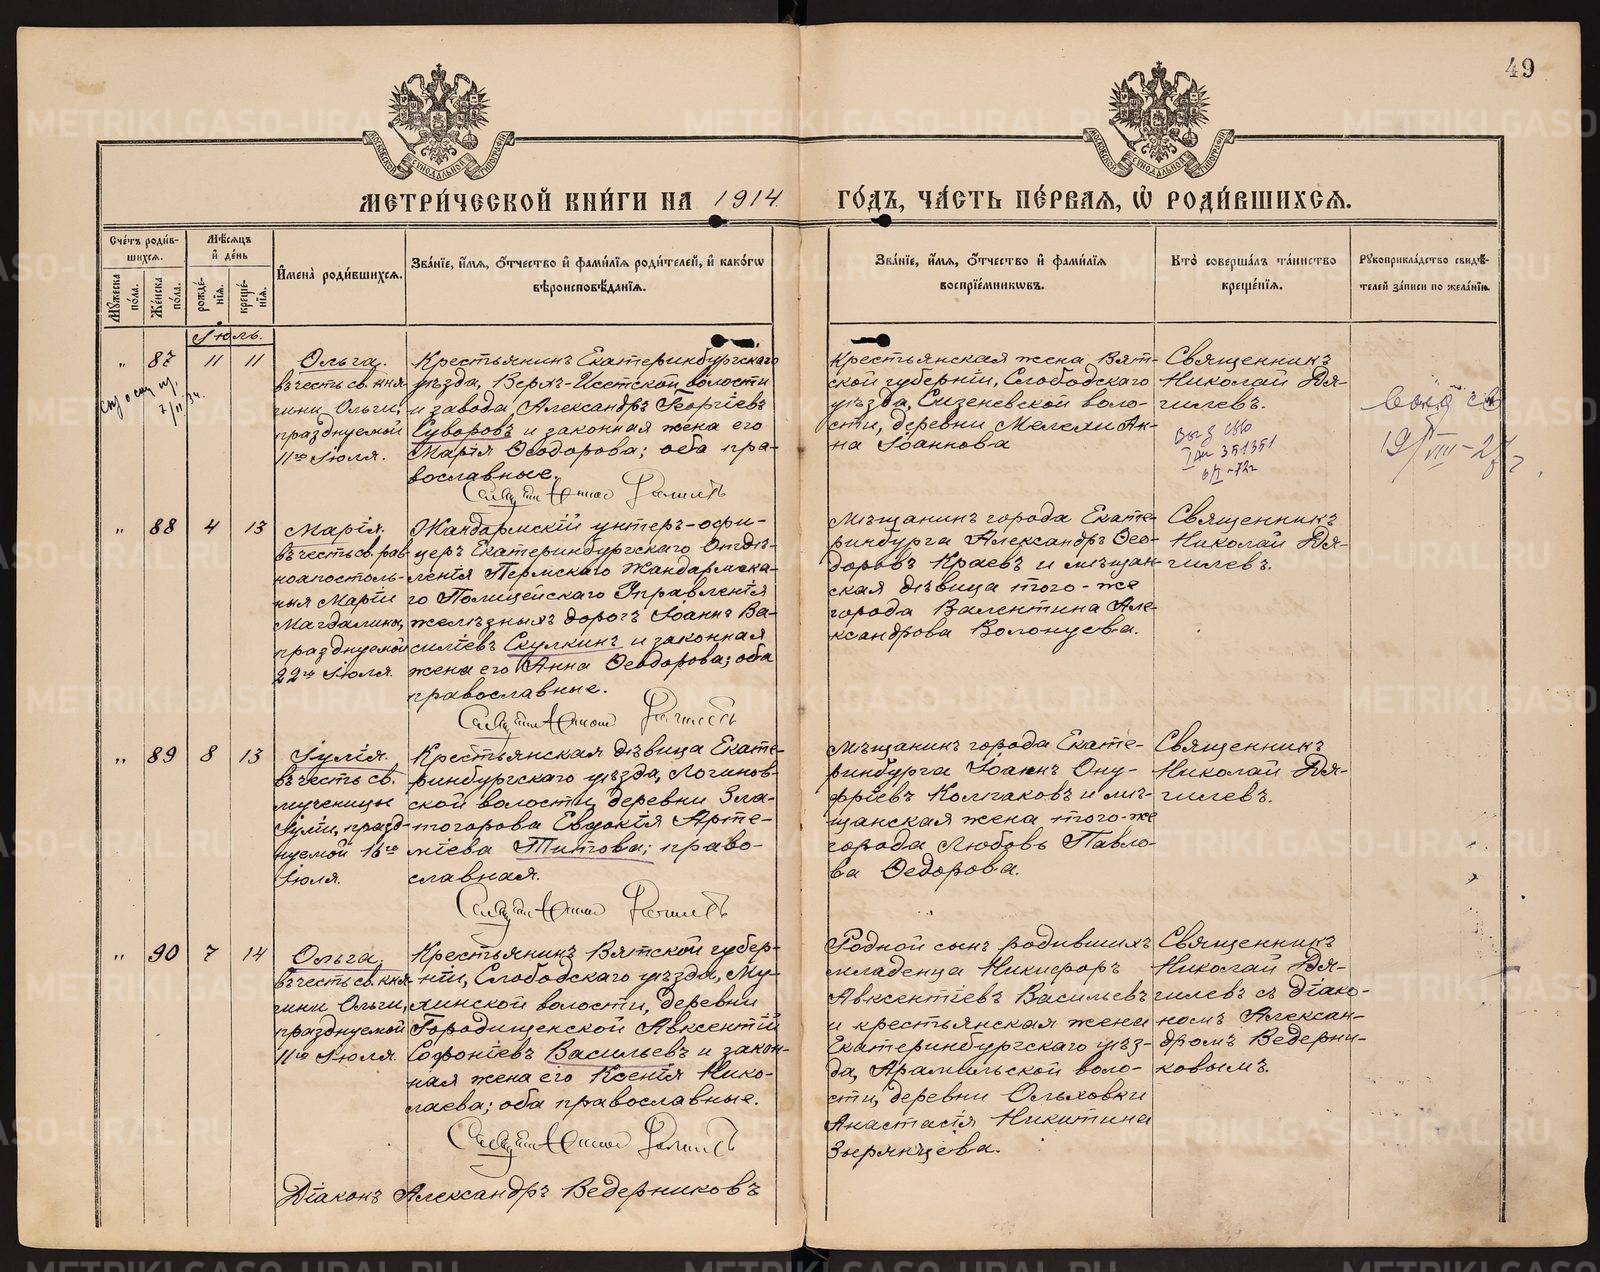 49
МОСКОВСКОЙ СУНОДАЛЬНОЙ ТИПОГРАФІИ
МОСКОВСКОЙ СУНОДАЛЬНОЙ ТИПОГРАФІИ
МЕТРИ́ЧЕСКОЙ КНИ́ГИ НА 1914 ГО́ДЪ, ЧА́СТЬ ПЕ́РВАЯ, Ѡ РОДИ́ВШИХСЯ.
Сче́тъ роди́вшихся.
Му́жеска по́ла.
Же́нска по́ла.
Мѣ́сяцъ и де́нь
рожде́нія.
креще́нія.
Имена̀ роди́вшихся.
Зва́ніе, и́мя, о́тчество и фами́лія роди́телей, и како́гѡ
вѣроисповѣ́данія.
Зва́ніе, и́мя, о́тчество и фами́лія
воспріе́мниковъ.
Кто̀ соверша́лъ та́инство
креще́нія.
Рукоприкла́дство свидѣ́-
телей за́писи по жела́нію.
Іюль.
" 87 11 11
Ольга.
въ честь св. кня-
гини Ольги,
празднуемой
11го Іюля.
Крестьянинъ Екатеринбургскаго
уѣзда, Верхъ-Исетской волости
и завода, Александръ Георгіевъ
Суворовъ и законная жена его
Марія Ѳеодорова; оба пра-
вославные.
Крестьянская жена Вят-
ской губерніи, Слободскаго
уѣзда, Сизеневской воло-
сти, деревни Мелехи Ан-
на Іоаннова
Священникъ
Николай Дя-
гилевъ.
351351
" 88 4 13
Марія.
въ честь св. рав-
ноапостоль-
ныя Маріи
Магдалины,
празднуемой
22го Іюля.
Жандармскій унтеръ-офи-
церъ Екатеринбургскаго Отдѣ-
ленія Пермскаго Жандармска-
го Полицейскаго Управленія
желѣзныхъ дорогъ Іоаннъ Ва-
силіевъ Скулкинъ и законная
жена его Анна Ѳеодорова; оба
православные.
Мѣщанинъ города Екате-
ринбурга Александръ Ѳео-
доровъ Краевъ и мѣщан-
ская дѣвица того-же
города Валентина Але-
ксандрова Волонуева.
Священникъ
Николай Дя-
гилевъ.
" 89 8 13
Іулія.
въ честь св.
мученицы
Іуліи, празд-
нуемой 16го
Іюля.
Крестьянская дѣвица Екате-
ринбургскаго уѣзда, Логинов-
ской волости, деревни Зла-
тогорова Евдокія Арте-
міева Титова; право-
славная.
Мѣщанинъ города Екате-
ринбурга Іоаннъ Ону-
фріевъ Колпаковъ и мѣ-
щанская жена того-же
города Любовь Павло-
ва Ѳедорова.
Священникъ
Николай Дя-
гилевъ.
" 90 7 14
Ольга.
въ честь св. кня-
гини Ольги,
празднуемой
11го Іюля.
Крестьянинъ Вятской губер-
ніи, Слободскаго уѣзда, Му-
линской волости, деревни
Городищенской Авксентій
Софоніевъ Васильевъ и закон-
ная жена его Ксенія Нико-
лаева; оба православные.
Родной сынъ родившихъ
младенца Никифоръ
Авксентіевъ Васильевъ
и крестьянская жена
Екатеринбургскаго уѣз-
да, Арамильской воло-
сти, деревни Ольховки
Анастасія Никитина
Зырянцева.
Священникъ
Николай Дя-
гилевъ съ діако-
номъ Алексан-
дромъ Ведерни-
ковымъ.
Діаконъ Александръ Ведерниковъ
METRIKI.GASO-URAL.RU